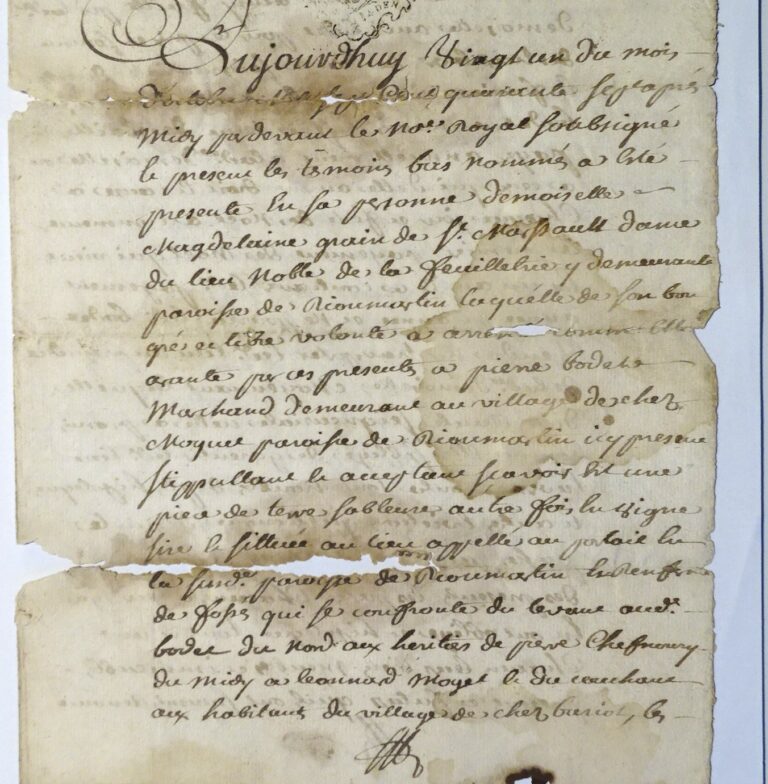 Aujourdhuy Vingt un du mois
sept cens quarante sept apres
Midy pardevant le No.re Royal soubsigné
le present les temoins bas nommés a Esté
presente En sa personne demoiselle
Magdelaine grain de St. Marsault dame
du lieu Noble de la feuilletrie y demeurante
paroisse de Rioumartin laquelle de son bon
gré et libre volonté a comme Elle
arante par ces presentes a pierre bodet
Marchand demeurant au village de chez
Moquet paroisse de Rioumartin icy present
stippullant & acceptant scavoir Est une
piece de terre sableuse autre fois En Vigne
sise & sittuée au lieu appellé au portail En
la susde. paroisse de Rioumartin Enrenfermé
de fossés qui se confronte du levant aud.
bodet du Nord aux hérities de pierre Chefnoury
du Midy a leonnard Moyet & du couchant
aux habitans du village de chez buriot, les